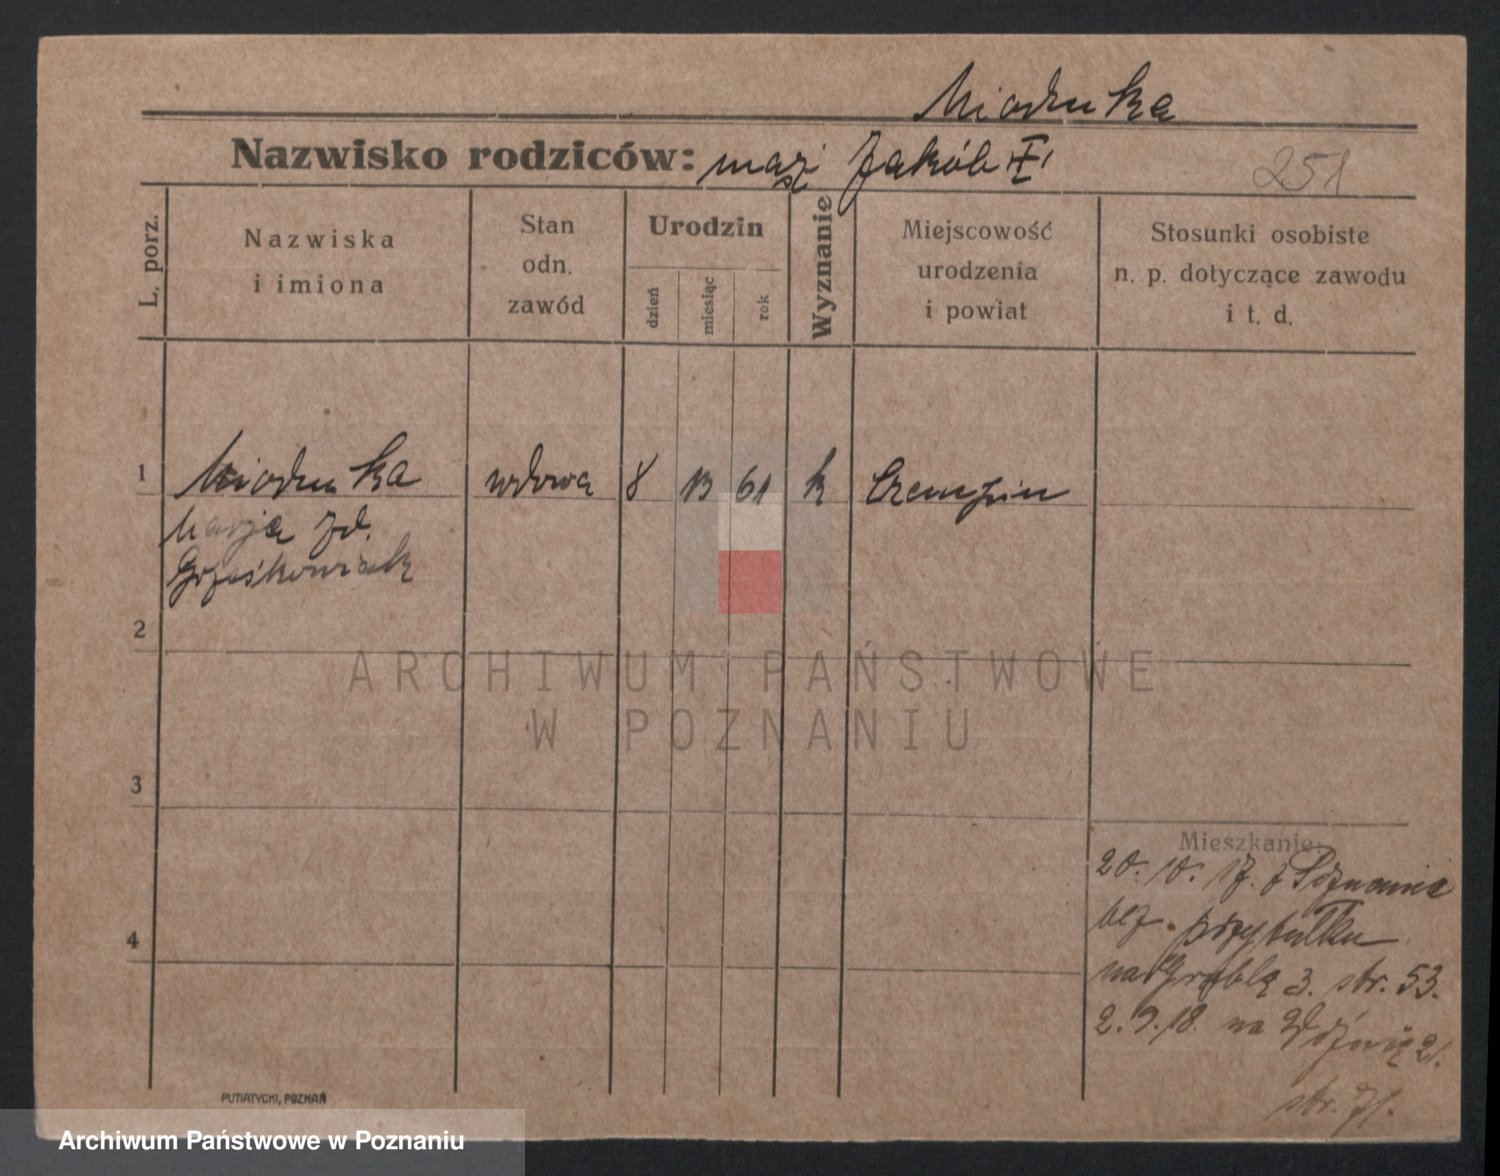 Mioduska
Nazwisko rodziców: mąż Jakób
251
L. porz.
Nazwiska
i imiona
Stan
odn.
zawód
Urodzin
dzień
miesiąc
rok
Wyznanie
Miejscowość
urodzenia
i powiat
Stosunki osobiste
n. p. dotyczące zawodu
i t. d.
1
Mioduska wdowa 8 61 k Czempin
Marja
Grześkowiak
2
3
4
Mieszkanie:
20. 10. 17. z Poznania
bez przytułku
na Groblę 3. str. 53.
2. 9. 18. na 21.
str. 71.
PUTIATYCKI, POZNAŃ
ARCHIWUM PAŃSTWOWE
W POZNANIU
Archiwum Państwowe w Poznaniu